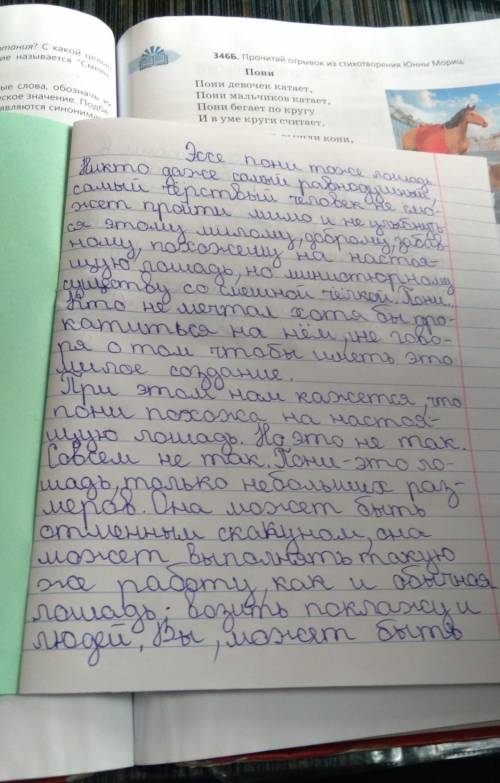 отания? С какой целью
ние называется "Смеян
ные слова, обозначь их
еское значение. Подбе
являются синонима
346Б. Прочитай отрывок из стихотворения Юнны Мориц.
Пони
Пони девочек катает,
Пони мальчиков катает,
Пони бегает по кругу
И в уме круги считает,
кони,
Эссе пони тоже лошадь
Никто даже самый равнодушный,
самый чёрствый человек не смо-
жет пройти мимо и не улыбнуть
ся этому милому, доброму, забав
ному, похожему на настоя-
щую лошадь, но миниатюрному
существу со смешной чёлкой. Пони.
Кто не мечтал хотя бы про-
катиться на нём, не гово-
ря о том чтобы иметь это
милое создание.
При этом нам кажется, что
пони похожа на настоя-
щую лошадь. Но это не так.
Совсем не так. Пони - это ло-
шадь, только небольших раз-
меров. Она может быть
отменным скакуном, она
может выполнять такую
же работу, как и обычная
лошадь: возить поклажу и
людей, Вы, может быть